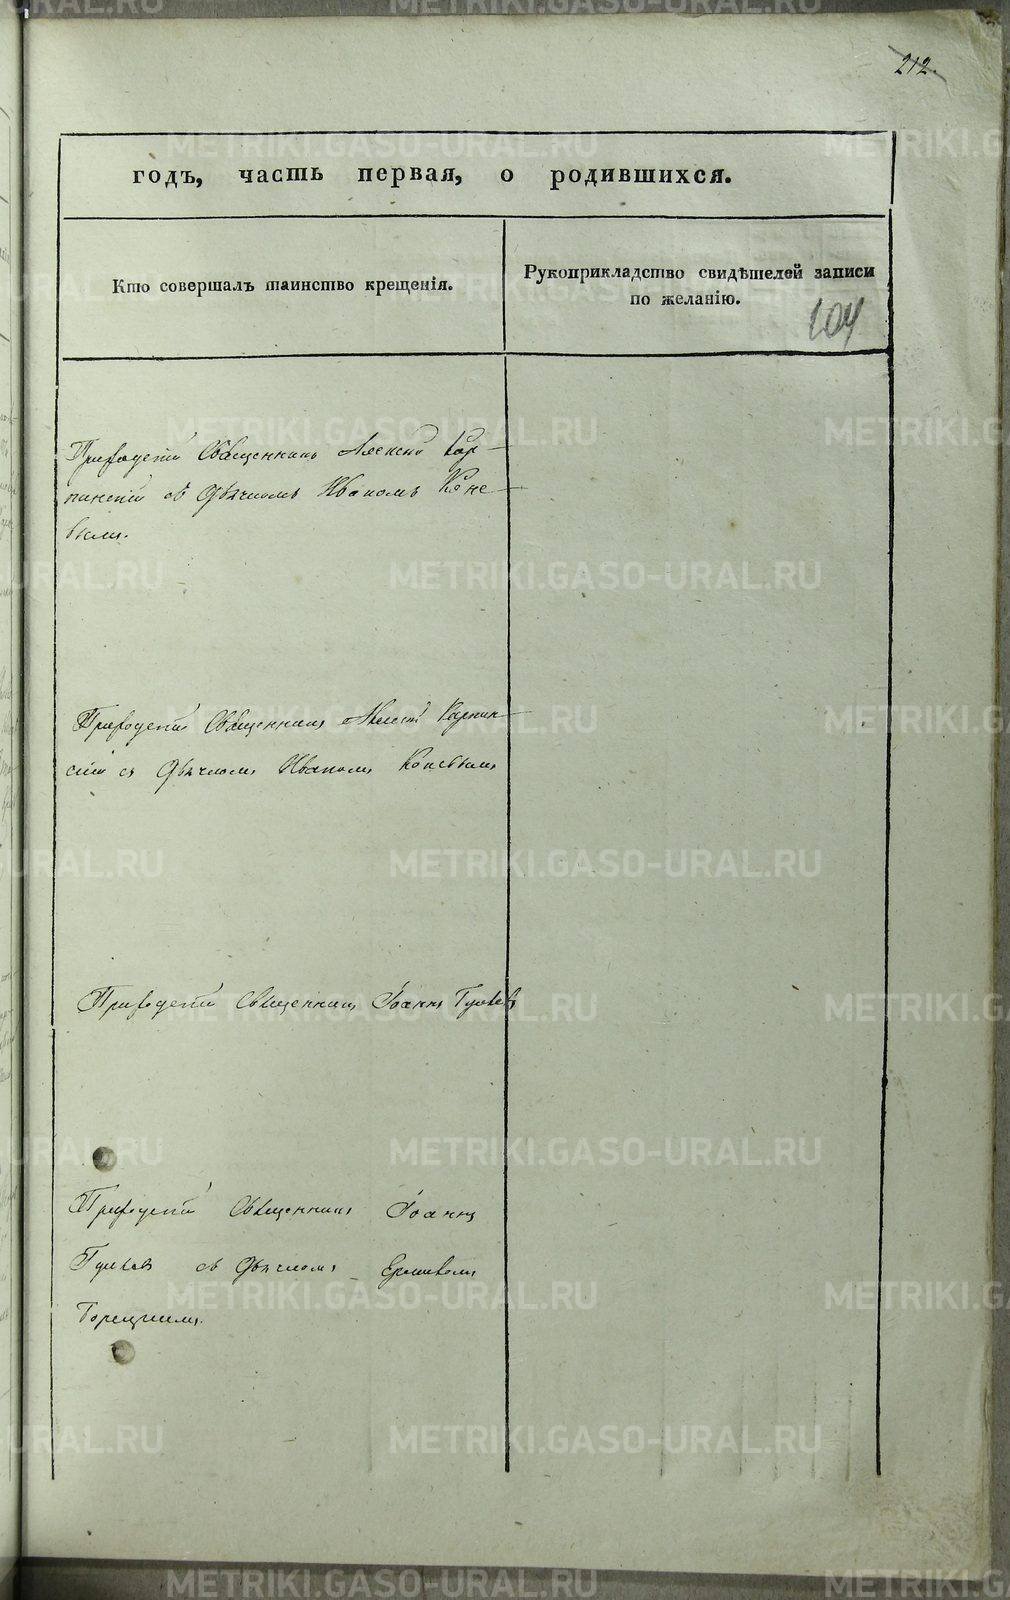 212.
годъ, часть первая, о родившихся.
Кто совершалъ таинство крещенія.
Рукоприкладство свидѣтелей записи
по желанію.
104
Приходскій Священникъ Алексій Кар-
пинскій съ Дьячкомъ Иваномъ Коне-
вымъ.
Приходскій Священникъ Алексій Карпин-
скій съ Дьячкомъ Иваномъ Коневымъ
Приходскій Священникъ Іоаннъ
Приходскій Священникъ Іоаннъ
съ Дьячкомъ
METRIKI.GASO-URAL.RU